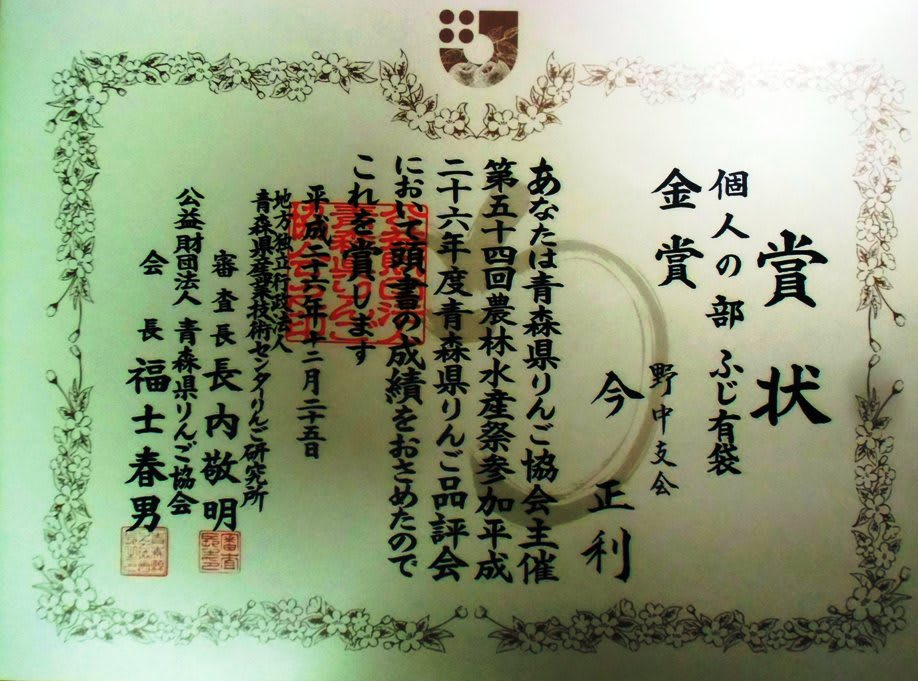 賞状
個人の部 ふじ有袋
金賞
野中支会
今 正利
あなたは青森県りんご協会主催
第五十四回農林水産祭参加平成
二十六年度青森県りんご品評会
において頭書の成績をおさめたので
これを賞します
平成二十六年十二月二十五日
地方独立行政法人
青森県産業技術センターりんご研究所
審査長 長内敬明
公益財団法人 青森県りんご協会
会長 福士春男